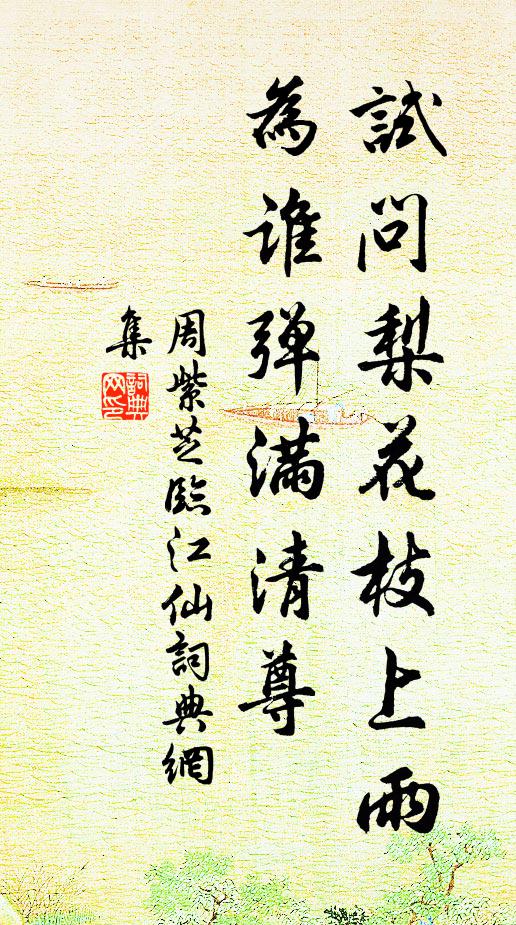 試問梨花枝上雨
為誰弹满清尊
周紫芝臨江仙詞典網
集
詞典
网印